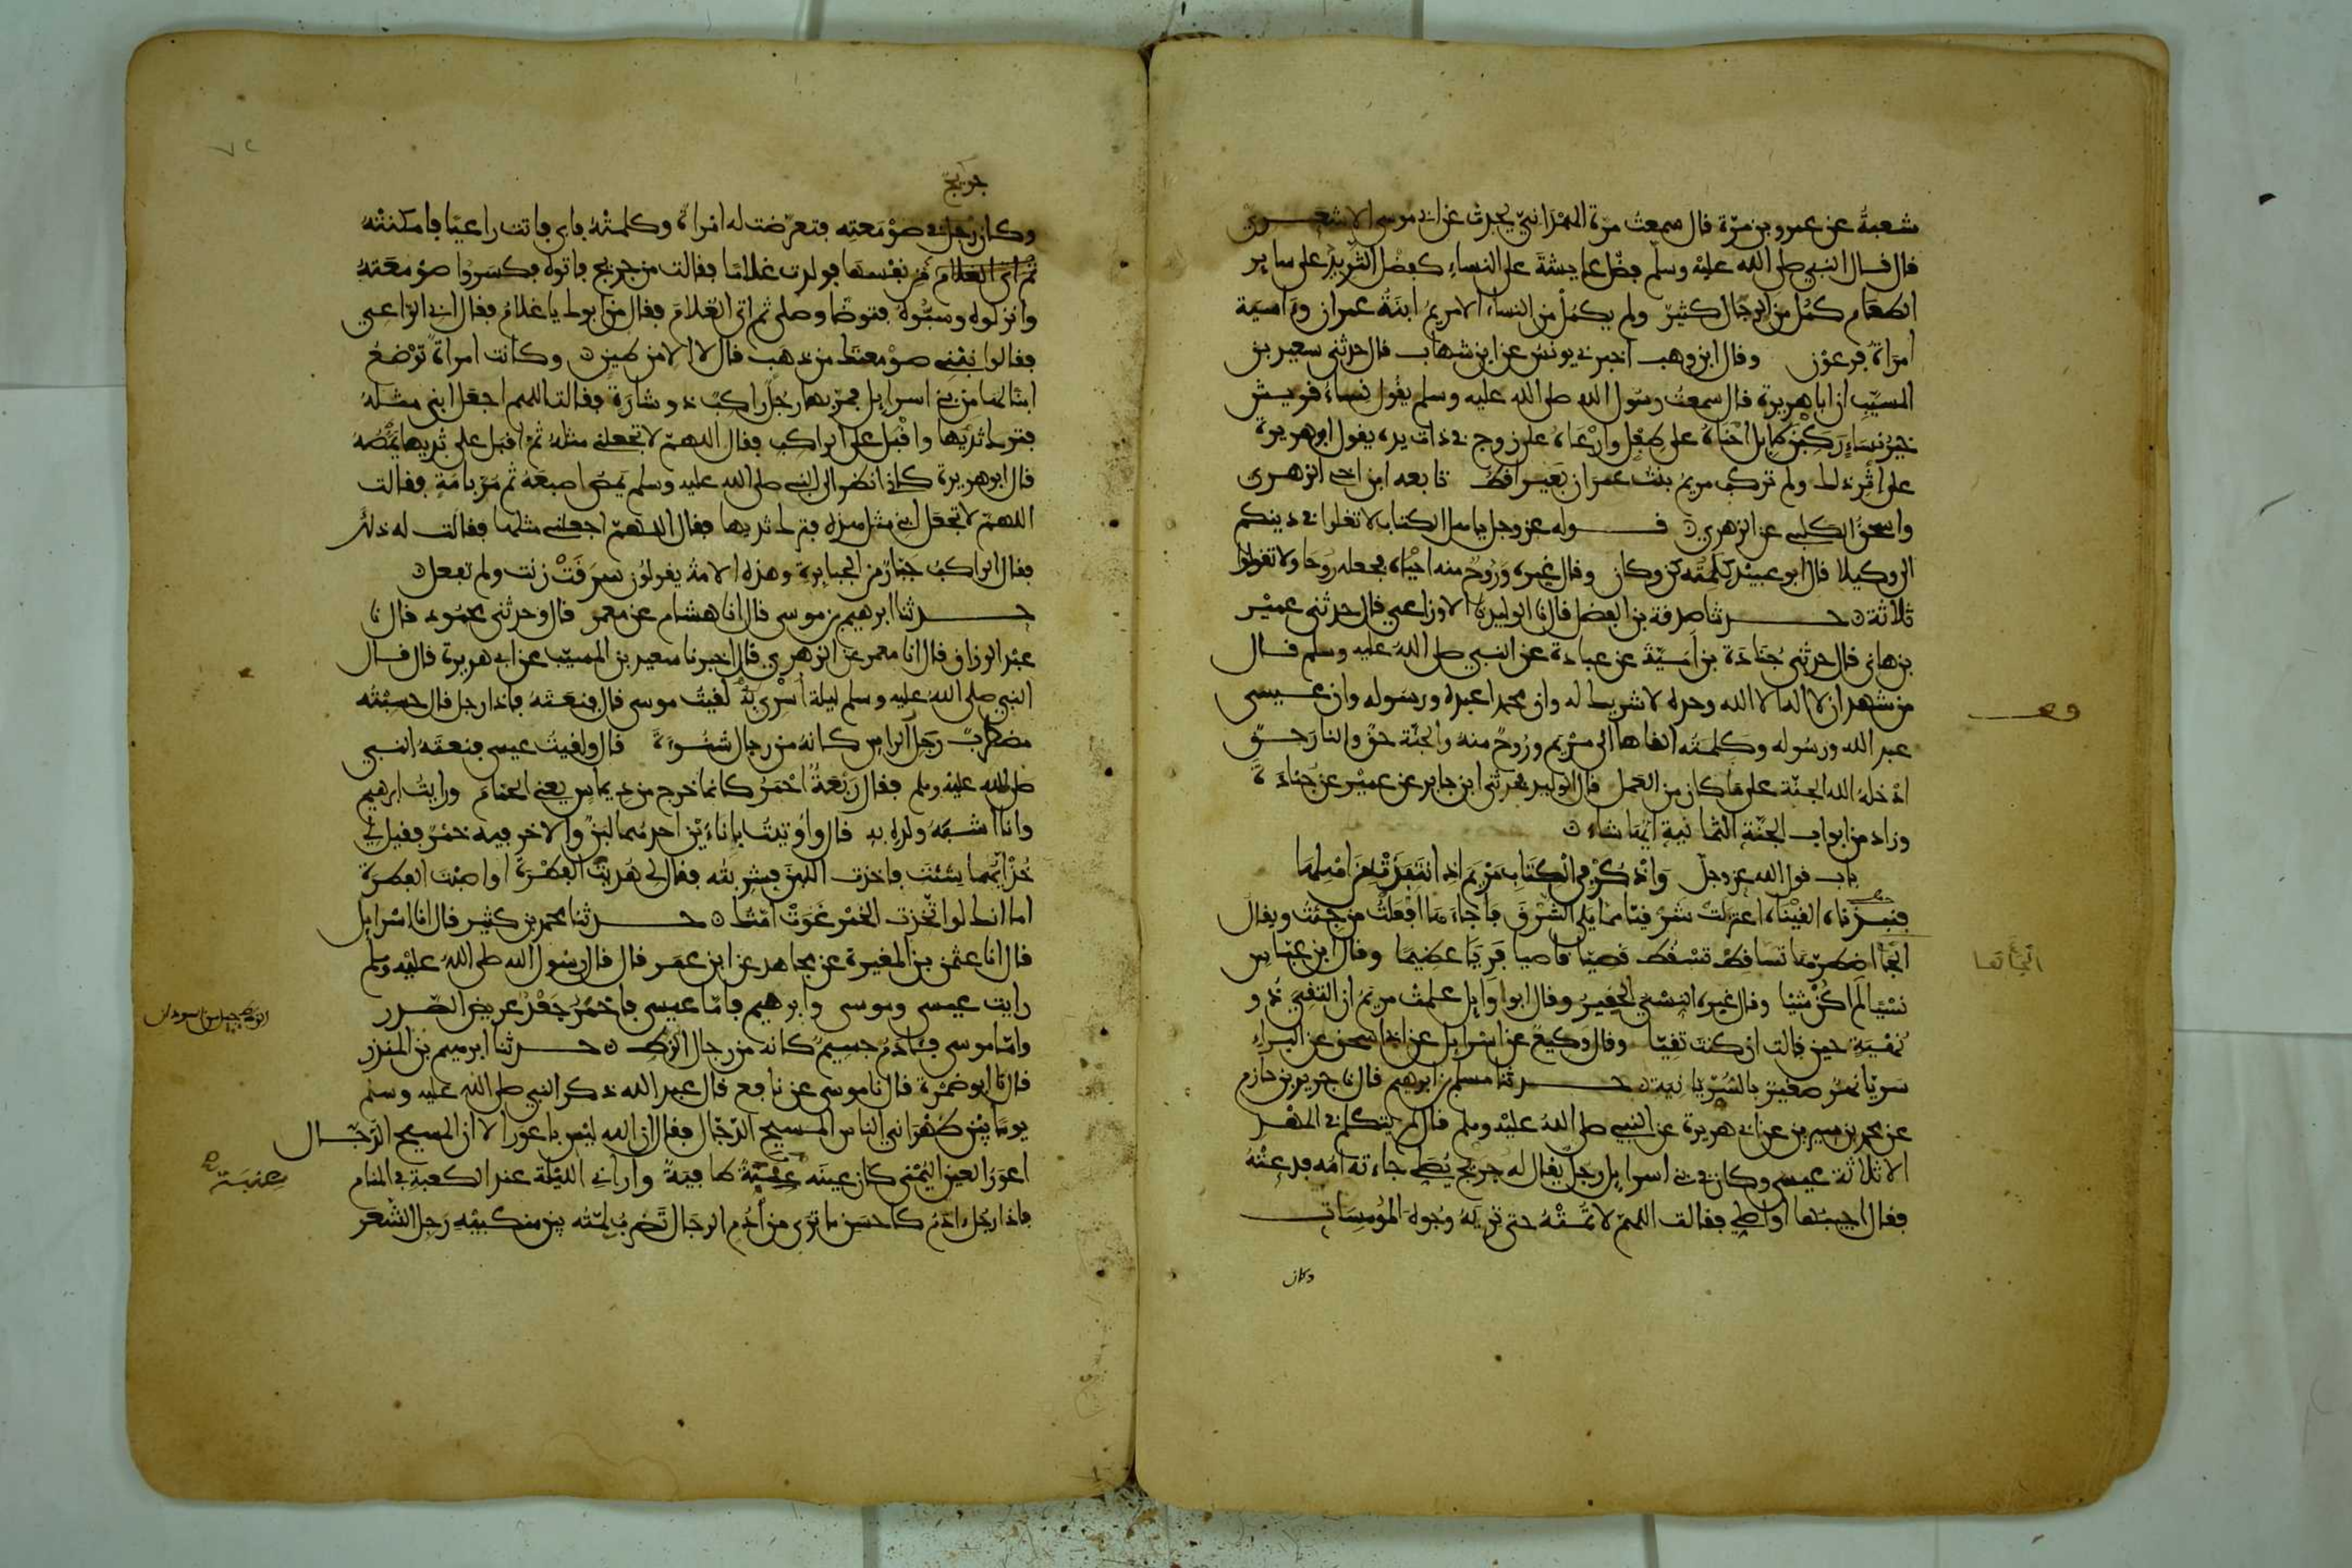 شعبة عن عمرو بن مرة قال سمعت مرة الهمداني يحدث عن ابي موسى الاشعري
قال قال النبي صلى الله عليه وسلم فضل عايشة على النساء كفضل الثريد على ساير
الطعام كمل من الرجال كثير ولم يكمل من النساء الا مريم ابنة عمران وءاسية
امراة فرعون وقال ابن وهب اخبرني يونس عن ابن شهاب قال حدثني سعيد بن
المسيب ان ابا هريرة قال سمعت رسول الله صلى الله عليه وسلم يقول نساء قريش
خير نساء ركبن الابل احناه على طفل وارعاه على زوج في ذات يده يقول ابو هريرة
على اثر ذلك ولم تركب مريم بنت عمران بعيرا قط تابعه ابن اخي الزهري
واسحق الكلبي عن الزهري قوله عز وجل ياهل الكتاب لا تغلوا في دينكم
الى وكيلا قال ابو عبيد كلمته كن وكان وقال غيره وروح منه احياه فجعله روحا ولا تقولوا
ثلاثة حدثنا صدقة بن الفضل قال نا الوليد نا الاوزاعي قال حدثني عمير
بن هاني قال حدثني جنادة بن امية عن عبادة عن النبي صلى الله عليه وسلم قال
من شهد ان لا اله الا الله وحده لا شريك له وان محمدا عبده ورسوله وان عيسى
عبد الله ورسوله وكلمته القاها الى مريم وروح منه والجنة حق والنار حق
ادخله الله الجنة على ما كان من العمل قال الوليد فحدثني ابن جابر عن عمير عن جنادة
وزاد من ابواب الجنة الثمانية ايها شاء
باب قول الله عز وجل واذكر في الكتاب مريم اذ انتبذت من اهلها
فنبذناه القيناه اعتزلت شرقيا مما يلي الشرق فاجاءها افعلت من جئت ويقال
الجأ اضطرها تساقط تسقط قصيا قاصيا فريا عظيما وقال ابن عباس
نسيا لم اكن شيا وقال غيره النسي الحقير وقال ابو وايل علمت مريم ان التقي ذو
نهية حين قالت ان كنت تقيا وقال وكيع عن اسرايل عن ابي اسحق عن البراء
سريا نهر صغير بالسريانية حدثنا مسلم بن ابرهيم قال نا جرير بن حازم
عن محمد بن سيرين عن ابي هريرة عن النبي صلى الله عليه وسلم قال لم يتكلم في المهد
الا ثلاثة عيسى وكان في بني اسرايل رجل يقال له جريج يصلي جاءته امه فدعته
فقال اجيبها او اصلي فقالت اللهم لا تمته حتى تريه وجوه المومسات
وكان
جريج
وكان في صومعته فتعرضت له امراة وكلمته فابى فاتت راعيا فامكنته
من نفسها فولدت غلاما فقالت من جريج فاتوه فكسروا صومعته
وانزلوه وسبوه فتوضا وصلى ثم اتى الغلام فقال من ابوك يا غلام فقال ان الراعي
فقالوا نبني صومعتك من ذهب قال لا الا من طين وكانت امراة ترضع
ابنا لها من بني اسرايل فمر بها رجل راكب ذو شارة فقالت اللهم اجعل ابني مثله
فترك ثديها واقبل على الراكب فقال اللهم لا تجعلني مثله ثم اقبل على ثديها يمصه
قال ابو هريرة كاني انظر الى النبي صلى الله عليه وسلم يمص اصبعه ثم مر بامة فقالت
اللهم لا تجعل ابني مثل هذه فترك ثديها فقال اللهم اجعلني مثلها فقالت له ذلك
فقال الراكب جبار من الجبابرة وهذه الامة يقولون سرقت زنت ولم تفعل
حدثنا ابرهيم بن موسى قال انا هشام عن معمر قال وحدثني محمود قال نا
عبد الرزاق قال انا معمر عن الزهري قال اخبرنا سعيد بن المسيب عن ابي هريرة قال قال
النبي صلى الله عليه وسلم ليلة اسري به لقيت موسى قال فنعته فاذا رجل قال حسبته
مضطرب رجل الراس كانه من رجال شنوءة قال ولقيت عيسى فنعته النبي
صلى الله عليه وسلم فقال ربعة احمر كانما خرج من ديماس يعني الحمام ورايت ابرهيم
وانا اشبه ولده به قال واوتيت باناءين احدهما لبن والاخر فيه خمر فقيل لي
خذ ايهما شئت فاخذت اللبن فشربته فقال لي هديت الفطرة او اصبت الفطرة
اما انك لو اخذت الخمر غوت امتك حدثنا محمد بن كثير قال انا اسرايل
قال انا عثمن بن المغيرة عن مجاهد عن ابن عمر قال قال رسول الله صلى الله عليه وسلم
رايت عيسى وموسى وابرهيم فاما عيسى فاحمر جعد عريض الصدر
واما موسى فئادم جسيم كانه من رجال الزط حدثنا ابرهيم بن المنذر
قال نا ابو ضمرة قال نا موسى عن نافع قال عبد الله ذكر النبي صلى الله عليه وسلم
يوما بين ظهراني الناس المسيح الدجال فقال ان الله ليس باعور الا ان المسيح الدجال
اعور العين اليمنى كان عينه عنبة طافية واراني الليلة عند الكعبة في المنام
فاذا رجل ءادم كاحسن ما ترى من ادم الرجال تضرب لمته بين منكبيه رجل الشعر
عنبة